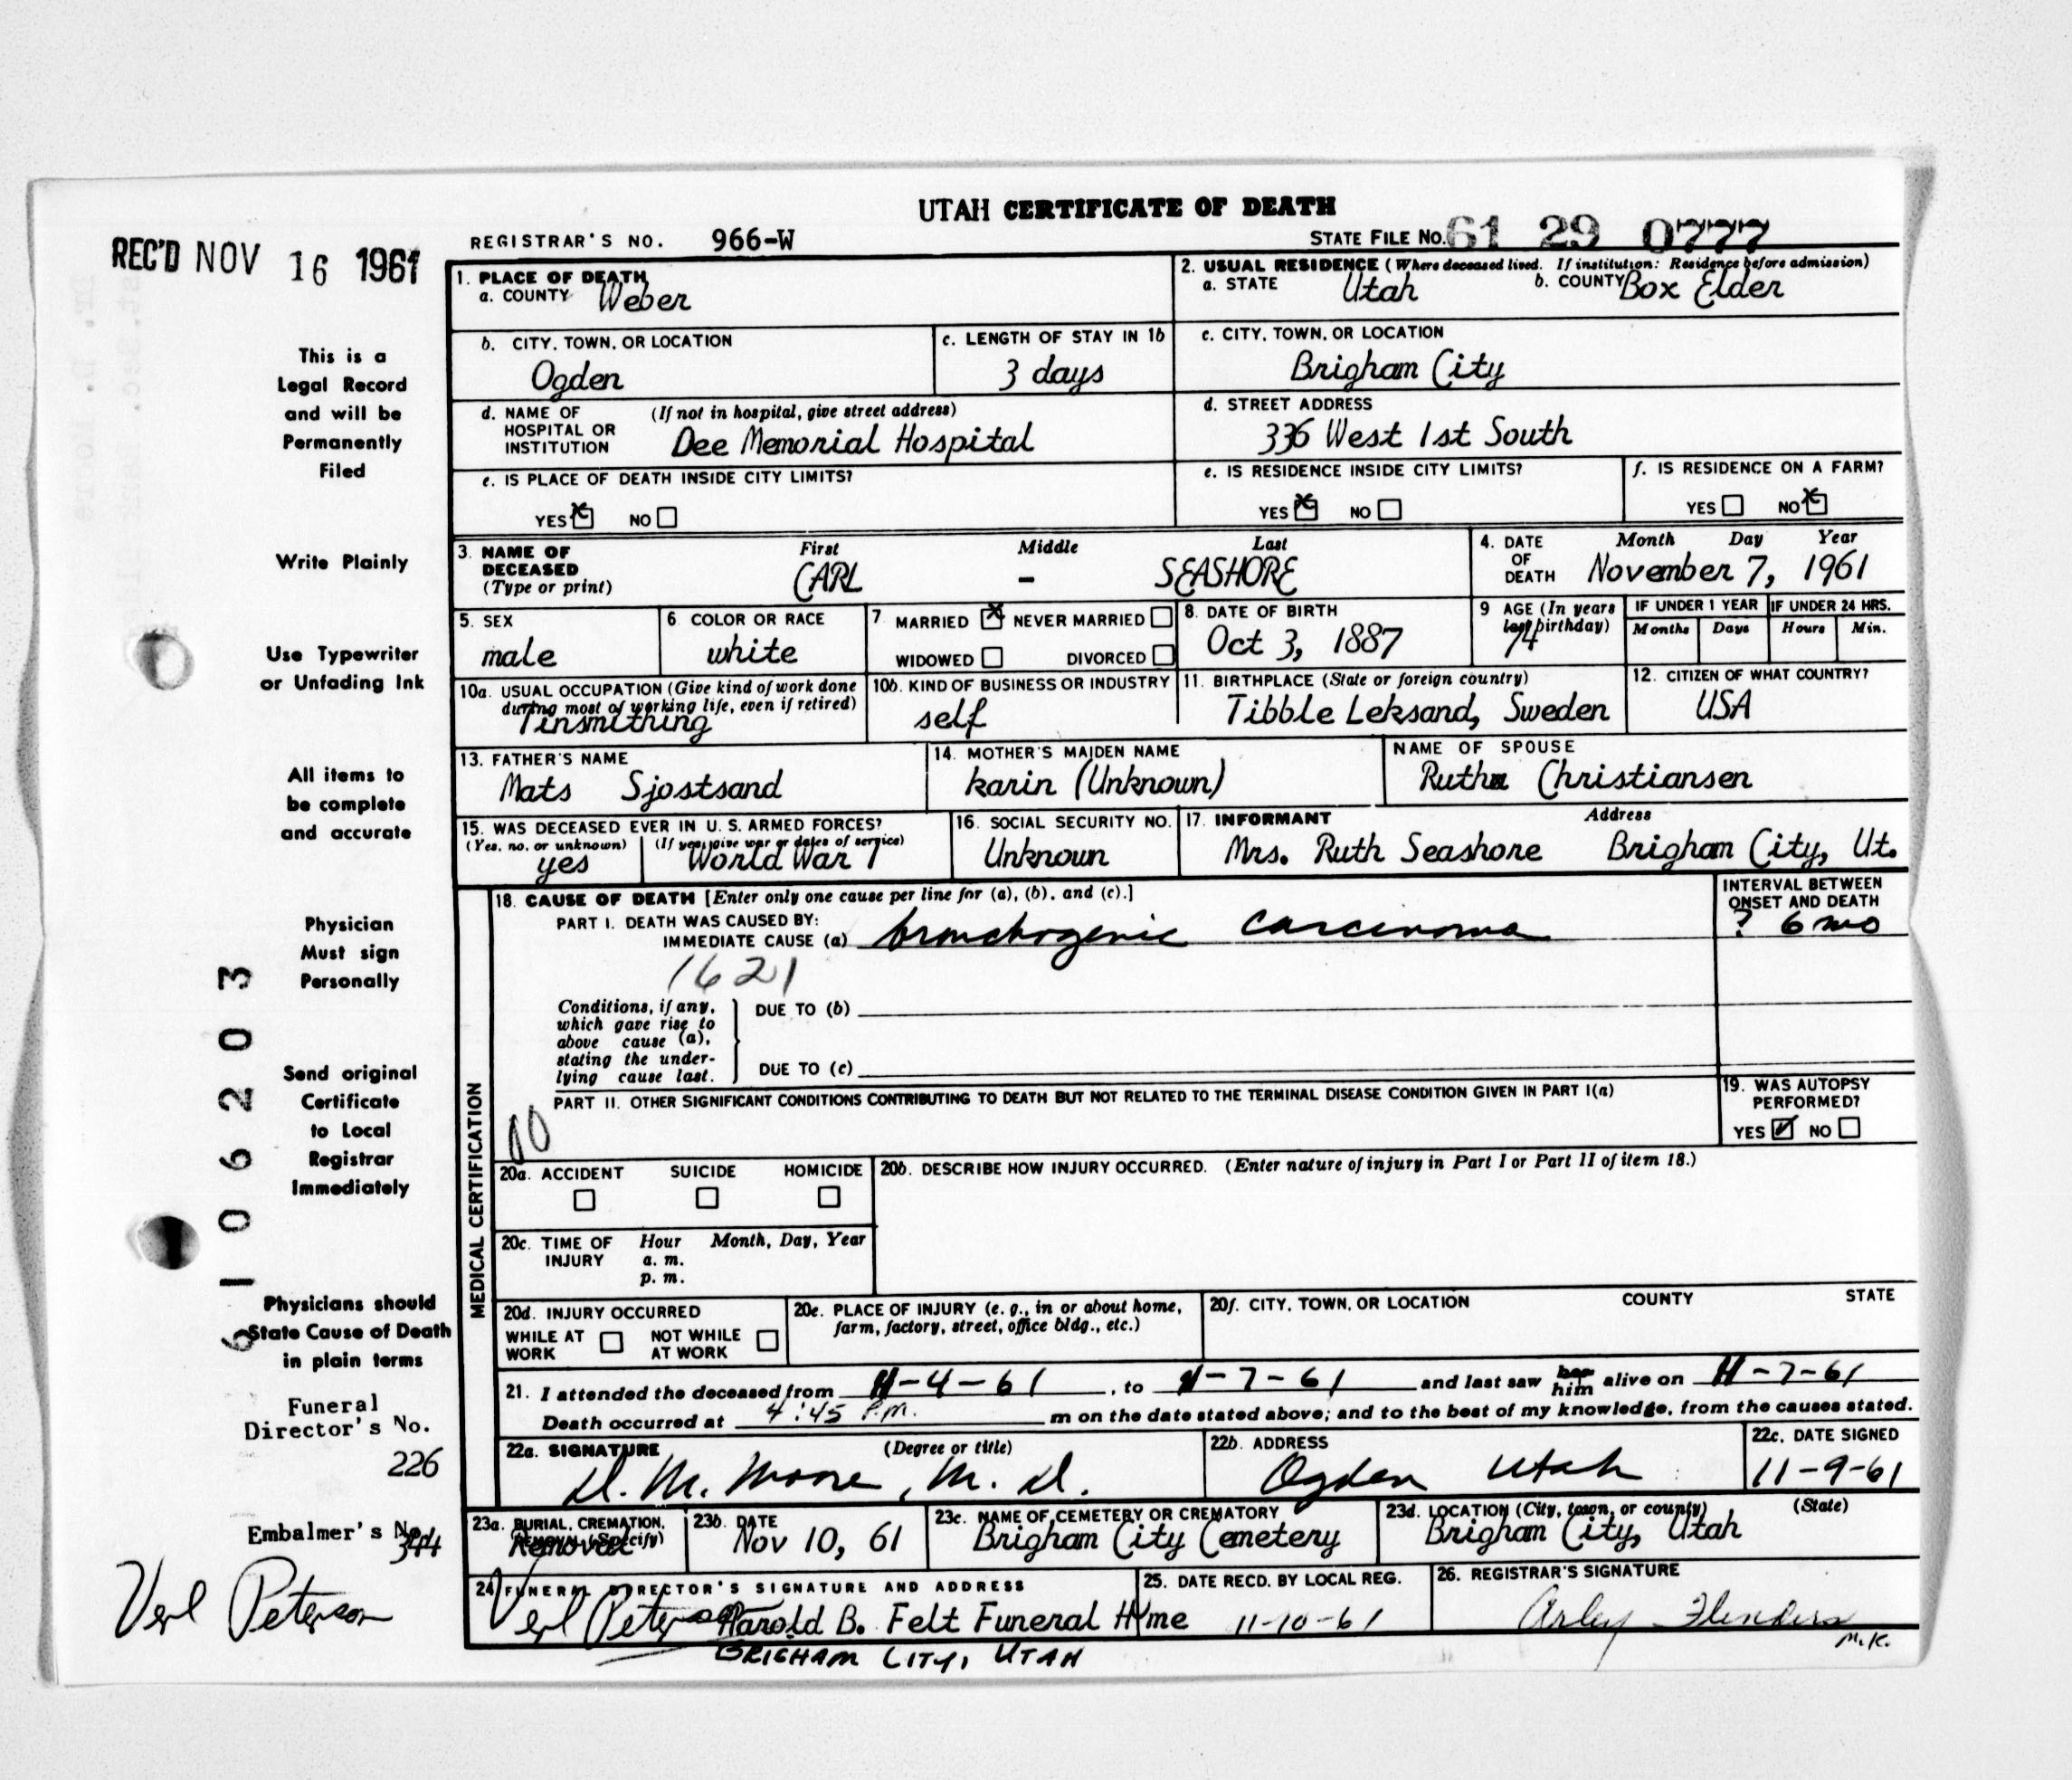 UTAH CERTIFICATE OF DEATH
REC'D NOV 16 1961
REGISTRAR'S NO. 966-W
STATE FILE NO. 61 29 0777
This is a
Legal Record
and will be
Permanently
Filed
Write Plainly
Use Typewriter
or Unfading Ink
All items to
be complete
and accurate
Physician
Must sign
Personally
Send original
Certificate
to Local
Registrar
Immediately
Physicians should
State Cause of Death
in plain terms
Funeral
Director's No.
226
Embalmer's No.
344
Verl Peterson
6 1 0 6 2 0 3
1. PLACE OF DEATH
a. COUNTY Weber
2. USUAL RESIDENCE (Where deceased lived. If institution: Residence before admission)
a. STATE Utah b. COUNTY Box Elder
b. CITY, TOWN, OR LOCATION
Ogden
c. LENGTH OF STAY IN 1b
3 days
c. CITY, TOWN, OR LOCATION
Brigham City
d. NAME OF (If not in hospital, give street address)
HOSPITAL OR
INSTITUTION Dee Memorial Hospital
d. STREET ADDRESS
336 West 1st South
e. IS PLACE OF DEATH INSIDE CITY LIMITS?
YES X NO
e. IS RESIDENCE INSIDE CITY LIMITS?
YES X NO
f. IS RESIDENCE ON A FARM?
YES NO X
3. NAME OF
DECEASED
(Type or print)
First Middle Last
CARL – SEASHORE
4. DATE
OF
DEATH
Month Day Year
November 7, 1961
5. SEX
male
6. COLOR OR RACE
white
7. MARRIED X NEVER MARRIED
WIDOWED DIVORCED
8. DATE OF BIRTH
Oct 3, 1887
9 AGE (In years
last birthday)
74
IF UNDER 1 YEAR
Months Days
IF UNDER 24 HRS.
Hours Min.
10a. USUAL OCCUPATION (Give kind of work done
during most of working life, even if retired)
Tinsmithing
10b. KIND OF BUSINESS OR INDUSTRY
self
11. BIRTHPLACE (State or foreign country)
Tibble Leksand, Sweden
12. CITIZEN OF WHAT COUNTRY?
USA
13. FATHER'S NAME
Mats Sjostsand
14. MOTHER'S MAIDEN NAME
Karin (Unknown)
NAME OF SPOUSE
Ruth Christiansen
15. WAS DECEASED EVER IN U. S. ARMED FORCES?
(Yes, no, or unknown) (If yes, give war or dates of service)
yes World War 1
16. SOCIAL SECURITY NO.
Unknown
17. INFORMANT Address
Mrs. Ruth Seashore Brigham City, Ut.
MEDICAL CERTIFICATION
18. CAUSE OF DEATH [Enter only one cause per line for (a), (b), and (c).]
PART I. DEATH WAS CAUSED BY:
IMMEDIATE CAUSE (a) bronchogenic carcinoma
INTERVAL BETWEEN
ONSET AND DEATH
? 6 mo
1621
Conditions, if any,
which gave rise to
above cause (a),
stating the under-
lying cause last.
DUE TO (b)
DUE TO (c)
PART II. OTHER SIGNIFICANT CONDITIONS CONTRIBUTING TO DEATH BUT NOT RELATED TO THE TERMINAL DISEASE CONDITION GIVEN IN PART I(a)
19. WAS AUTOPSY
PERFORMED?
YES ✓ NO
20a. ACCIDENT SUICIDE HOMICIDE
20b. DESCRIBE HOW INJURY OCCURRED. (Enter nature of injury in Part I or Part II of item 18.)
20c. TIME OF
INJURY
Hour Month, Day, Year
a. m.
p. m.
20d. INJURY OCCURRED
WHILE AT
WORK
NOT WHILE
AT WORK
20e. PLACE OF INJURY (e. g., in or about home,
farm, factory, street, office bldg., etc.)
20f. CITY, TOWN, OR LOCATION COUNTY STATE
21. I attended the deceased from 11-4-61, to 11-7-61 and last saw her him alive on 11-7-61
Death occurred at 4:45 P.M. m on the date stated above; and to the best of my knowledge, from the causes stated.
22a. SIGNATURE (Degree or title)
D. M. Moore, M. D.
22b. ADDRESS
Ogden Utah
22c. DATE SIGNED
11-9-61
23a. BURIAL, CREMATION,
REMOVAL (Specify)
Removal
23b. DATE
Nov 10, 61
23c. NAME OF CEMETERY OR CREMATORY
Brigham City Cemetery
23d. LOCATION (City, town, or county) (State)
Brigham City, Utah
24 FUNERAL DIRECTOR'S SIGNATURE AND ADDRESS
Verl Peterson Harold B. Felt Funeral Home
BRIGHAM CITY, UTAH
25. DATE RECD. BY LOCAL REG.
11-10-61
26. REGISTRAR'S SIGNATURE
Arley Flinders
M.K.